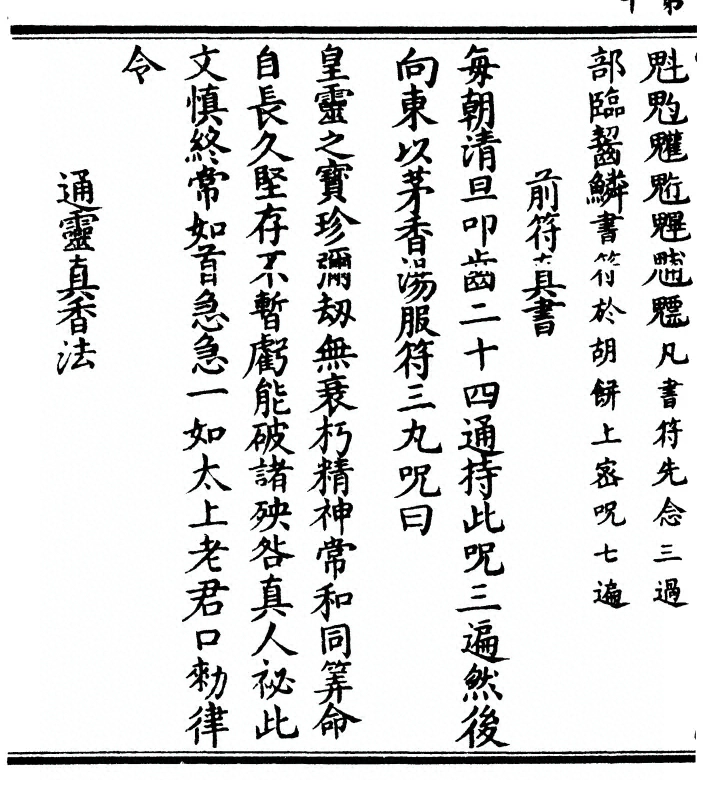 魁𩲃魓䰢魒凡書符先念三過
部臨齧鱗書符於胡餅上密呪七遍
前符真書
每朝清旦叩齒二十四通持此呪三遍然後
向東以茅香湯服符三丸呪曰
皇靈之寶珍彌劫無衰朽精神常和同筭命
自長久堅存不暫虧能破諸殃咎真人祕此
文慎終常如首急急一如太上老君口勑律
令
通靈真香法